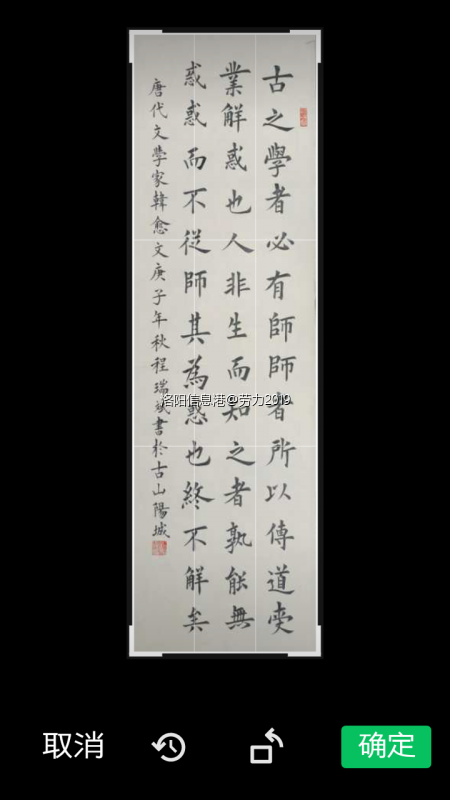 古之學者必有師師者所以傳道受
業解惑也人非生而知之者孰能無
惑惑而不從師其為惑也終不解矣
唐代文學家韓愈文庚子年秋程瑞斌書於古山陽城
洛阳信息港@劳力2919
取消
确定